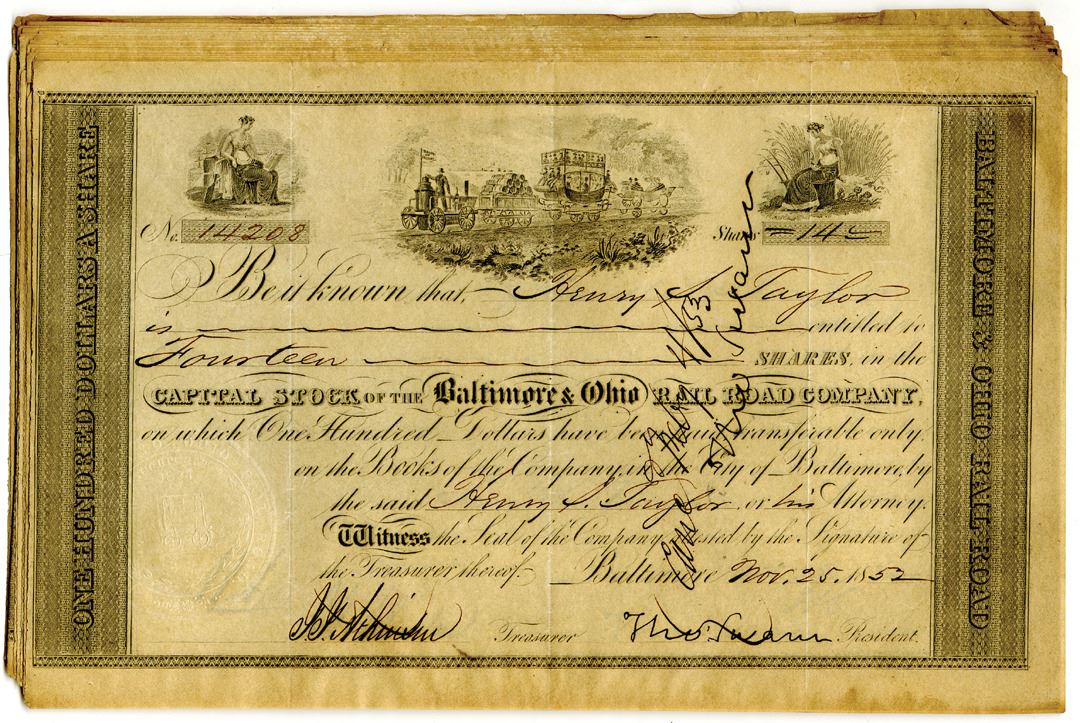 ONE HUNDRED DOLLARS A SHARE
No. 14208
Shares 14
Be it known that, Henry S. Taylor
is entitled to
Fourteen SHARES, in the
CAPITAL STOCK OF THE Baltimore & Ohio RAIL ROAD COMPANY,
on which One Hundred Dollars have been transferable only
on the Books of the Company, in the City of Baltimore, by
the said Henry S. Taylor or his Attorney.
Witness the Seal of the Company attested by the Signature of
the Treasurer thereof Baltimore Nov. 25, 1852
Treasurer
Tho. Swann President.
BALTIMORE & OHIO RAIL ROAD
4/53
Thos Swann